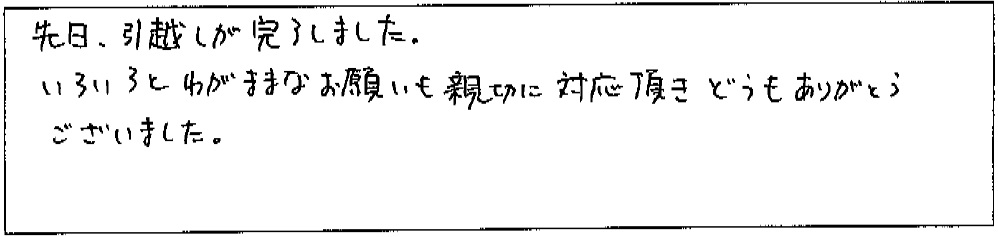 先日、引越しが完了しました。
いろいろとわがままなお願いも親切に対応頂きどうもありがとう
ございました。